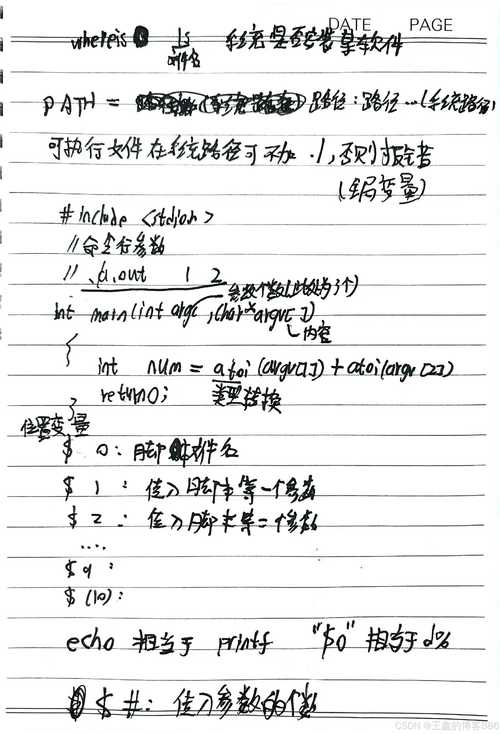 DATE PAGE
whereis ls 系统是否安装某软件
文件名
PATH = 路径:路径…(系统路径)
可执行文件在系统路径可不加 ./,否则报错
(全局变量)
#include <stdion>
//命令行参数
// ./a.out 1 2
参数个数(此处为3个)
int main(int argc, char*argv[])
内容
{
int num = atoi(argv[1]) + atoi(argv[2])
return 0; 类型转换
}
位置变量
$ 0: 脚本文件名
$ 1: 传入脚本第一个参数
$ 2: 传入脚本第二个参数
....
$ 9:
$ (10):
echo 相当于 printf "$0" 相当于 d%
$ #: 传入参数的个数
CSDN @王鑫的博客886